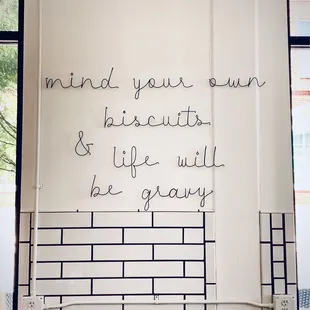 mind your own
biscuits
& life will
be gravy